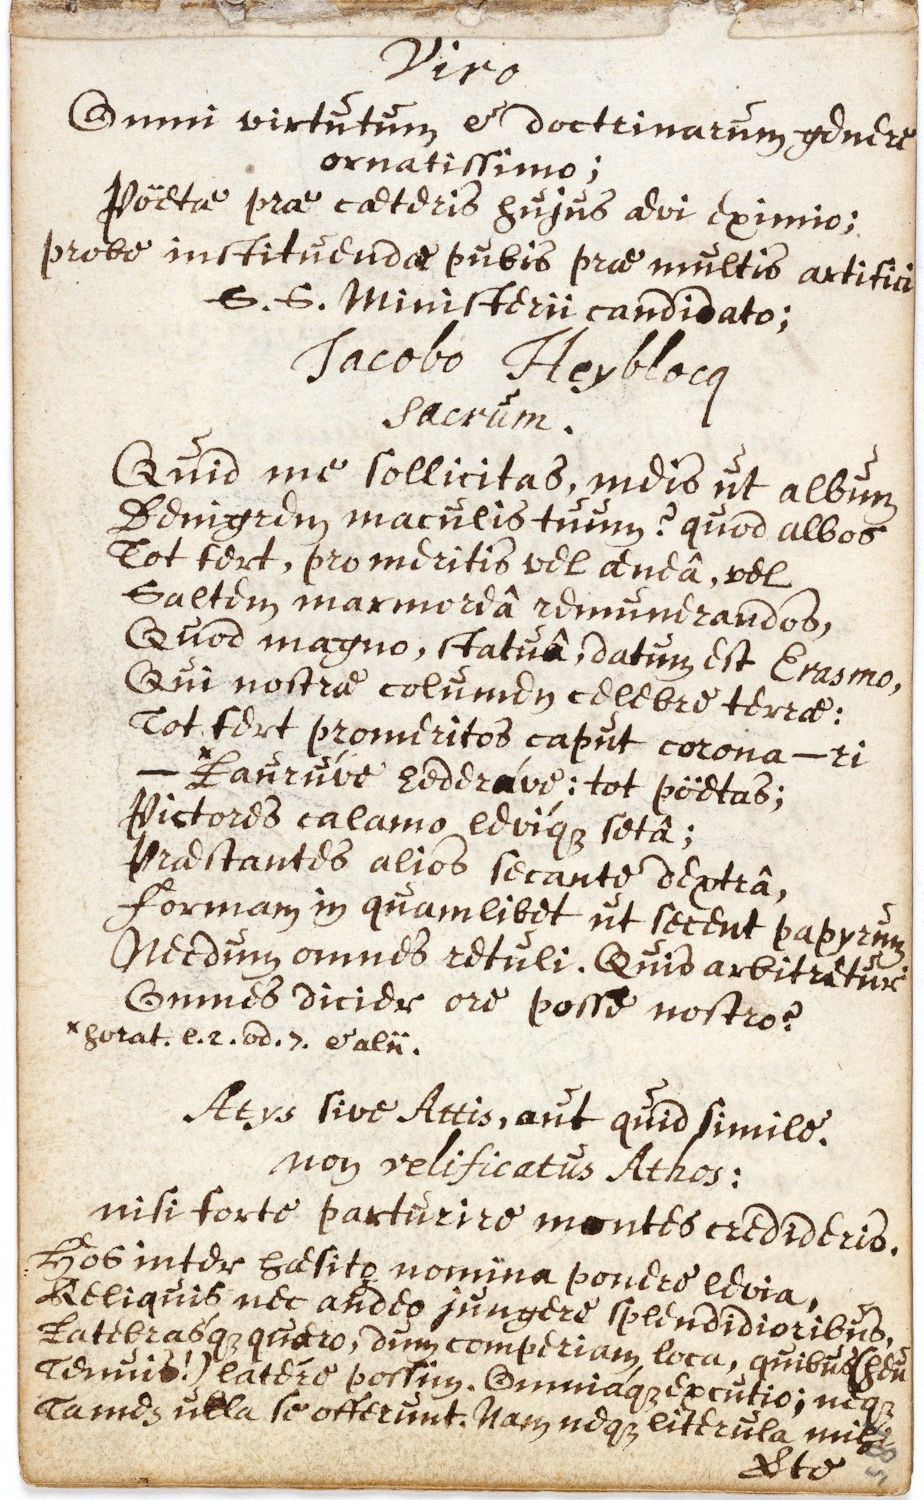 Viro
Omni virtutum & doctrinarum genere
ornatissimo;
Pöetæ præ cæteris hujus ævi eximio;
probe instituendæ pubis præ multis artifici
S. S. Ministerii candidato;
Jacobo Heyblocq
Sacrum.
Quid me sollicitas, meis ut album
Denigrem maculis tuum? quod albos
Tot fert, promeritis vel æneâ, vel
Saltem marmoreâ remunerandos,
Quod magno, statuâ, datum est Erasmo,
Qui nostræ columen celebre terræ:
Tot fert promeritos caput corona—ri
— *Laurúve hederáve: tot pöetas;
Pictores calamo levíq; setâ;
Præstantes alios secante dextrâ,
Formam in quamlibet ut secent papyrum
Necdum omnes retuli. Quis arbitretur
Omnes dicier ore posse nostro?
*horat. l. 2. od. 7. & alii.
Atys sive Attis, aut quid simile.
non velificatus Athos:
nisi forte parturire montes credideris.
Hos inter hæsito nomina ponere levia,
Reliquis nec audeo jungere splendidioribus,
Latebrasq; quæro, dum comperiam loca, quibus (heu
Tenuis!) latére possim. Omniáq; excutio; neq;
Tamen ulla se offerunt. Nam neq; literula mihi